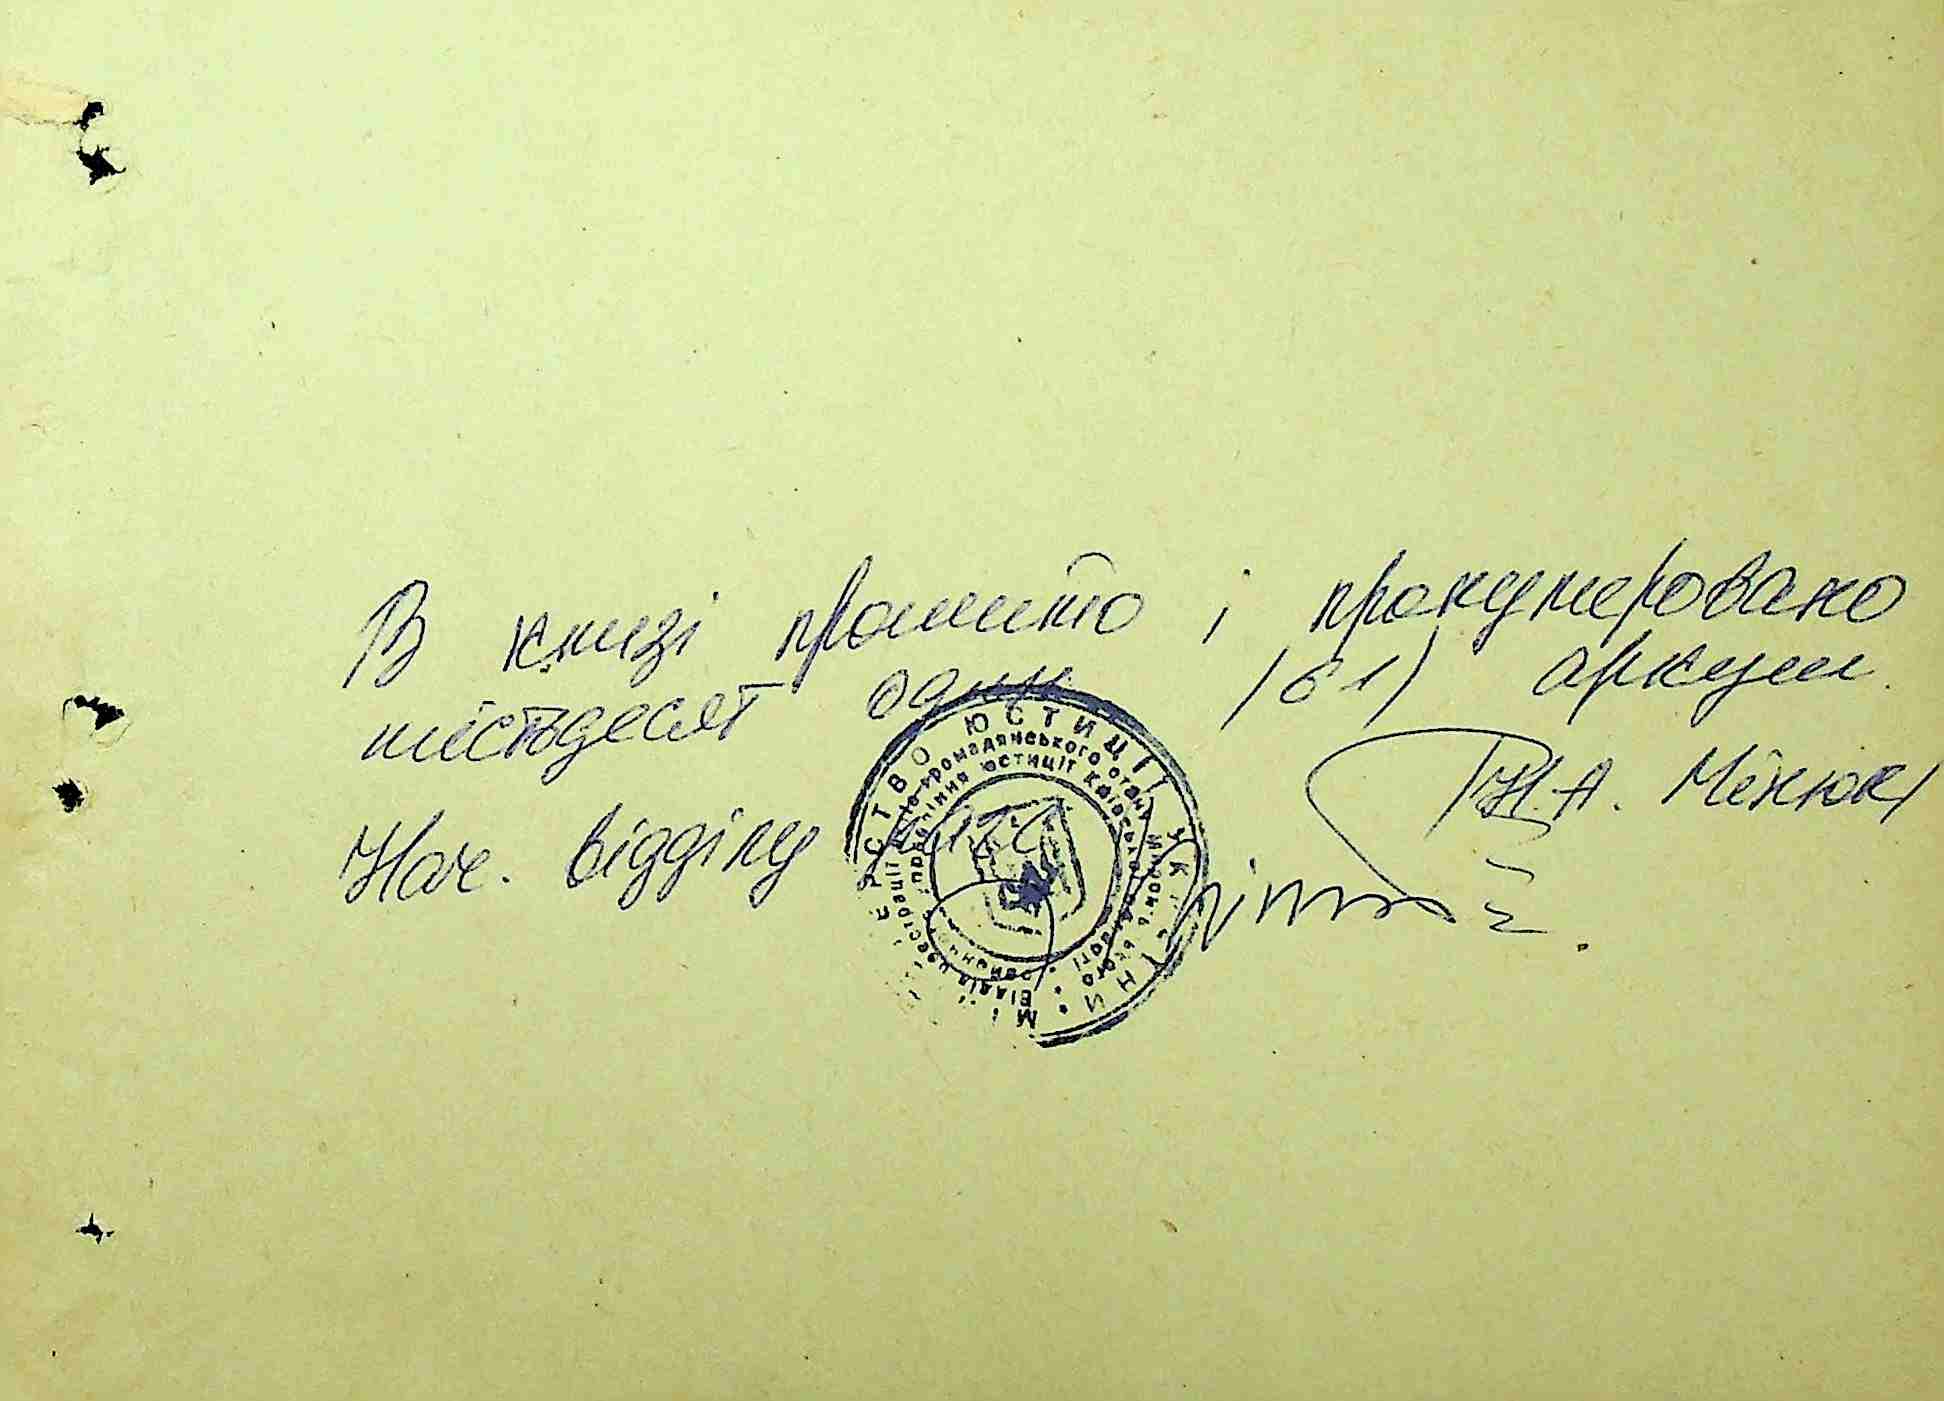 В книзі прошито і пронумеровано
шістдесят один /61/ аркуш.
Нач. відділу Н.А. Мінюк
МІНІСТЕРСТВО ЮСТИЦІЇ УКРАЇНИ
Відділ реєстрації актів громадянського стану
районного управління юстиції Київської області